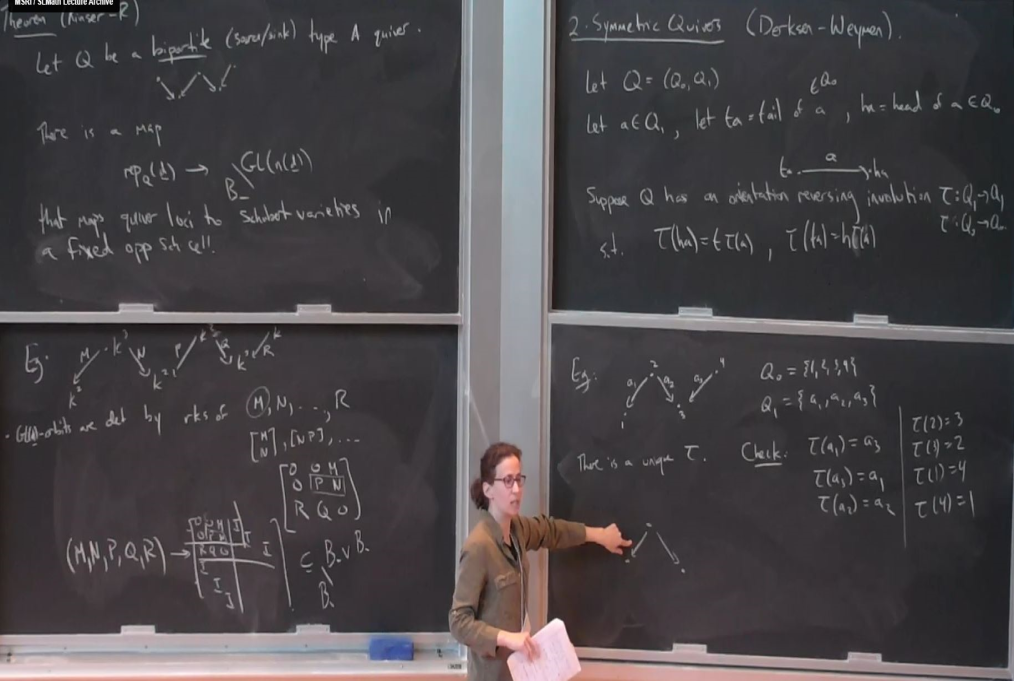 MSRI / SLMath Lecture Archive
Theorem (Kinser-R)
Let Q be a bipartite (source/sink) type A quiver.
There is a map
rep_Q(d) → B_\GL(n(d))
that maps quiver loci to Schubert varieties in
a fixed opp Sch cell!!
Eg:
M N P Q R
k² k² k² k
· GL(d)-orbits are det by rks of M, N, ..., R
[M N], [N P], ...
[0 0 M
0 P N
R Q 0]
(M,N,P,Q,R) →
0 0 M I
0 P N I
R Q 0 I
I
I
I
⊆ B_\B_vB_
2. Symmetric Quivers (Derksen-Weyman).
Let Q = (Q₀, Q₁)
∈Q₀
Let a∈Q₁, let ta = tail of a, ha = head of a ∈ Q₀
ta a ha
Suppose Q has an orientation reversing involution τ: Q₁→Q₁
τ: Q₀→Q₀
s.t. τ(ha) = tτ(a), τ(ta) = hτ(a)
Eg:
1 2 3 4
a₁ a₂ a₃
Q₀ = {1,2,3,4}
Q₁ = {a₁,a₂,a₃}
There is a unique τ.
Check: τ(a₁) = a₃
τ(a₃) = a₁
τ(a₂) = a₂
τ(2) = 3
τ(3) = 2
τ(1) = 4
τ(4) = 1